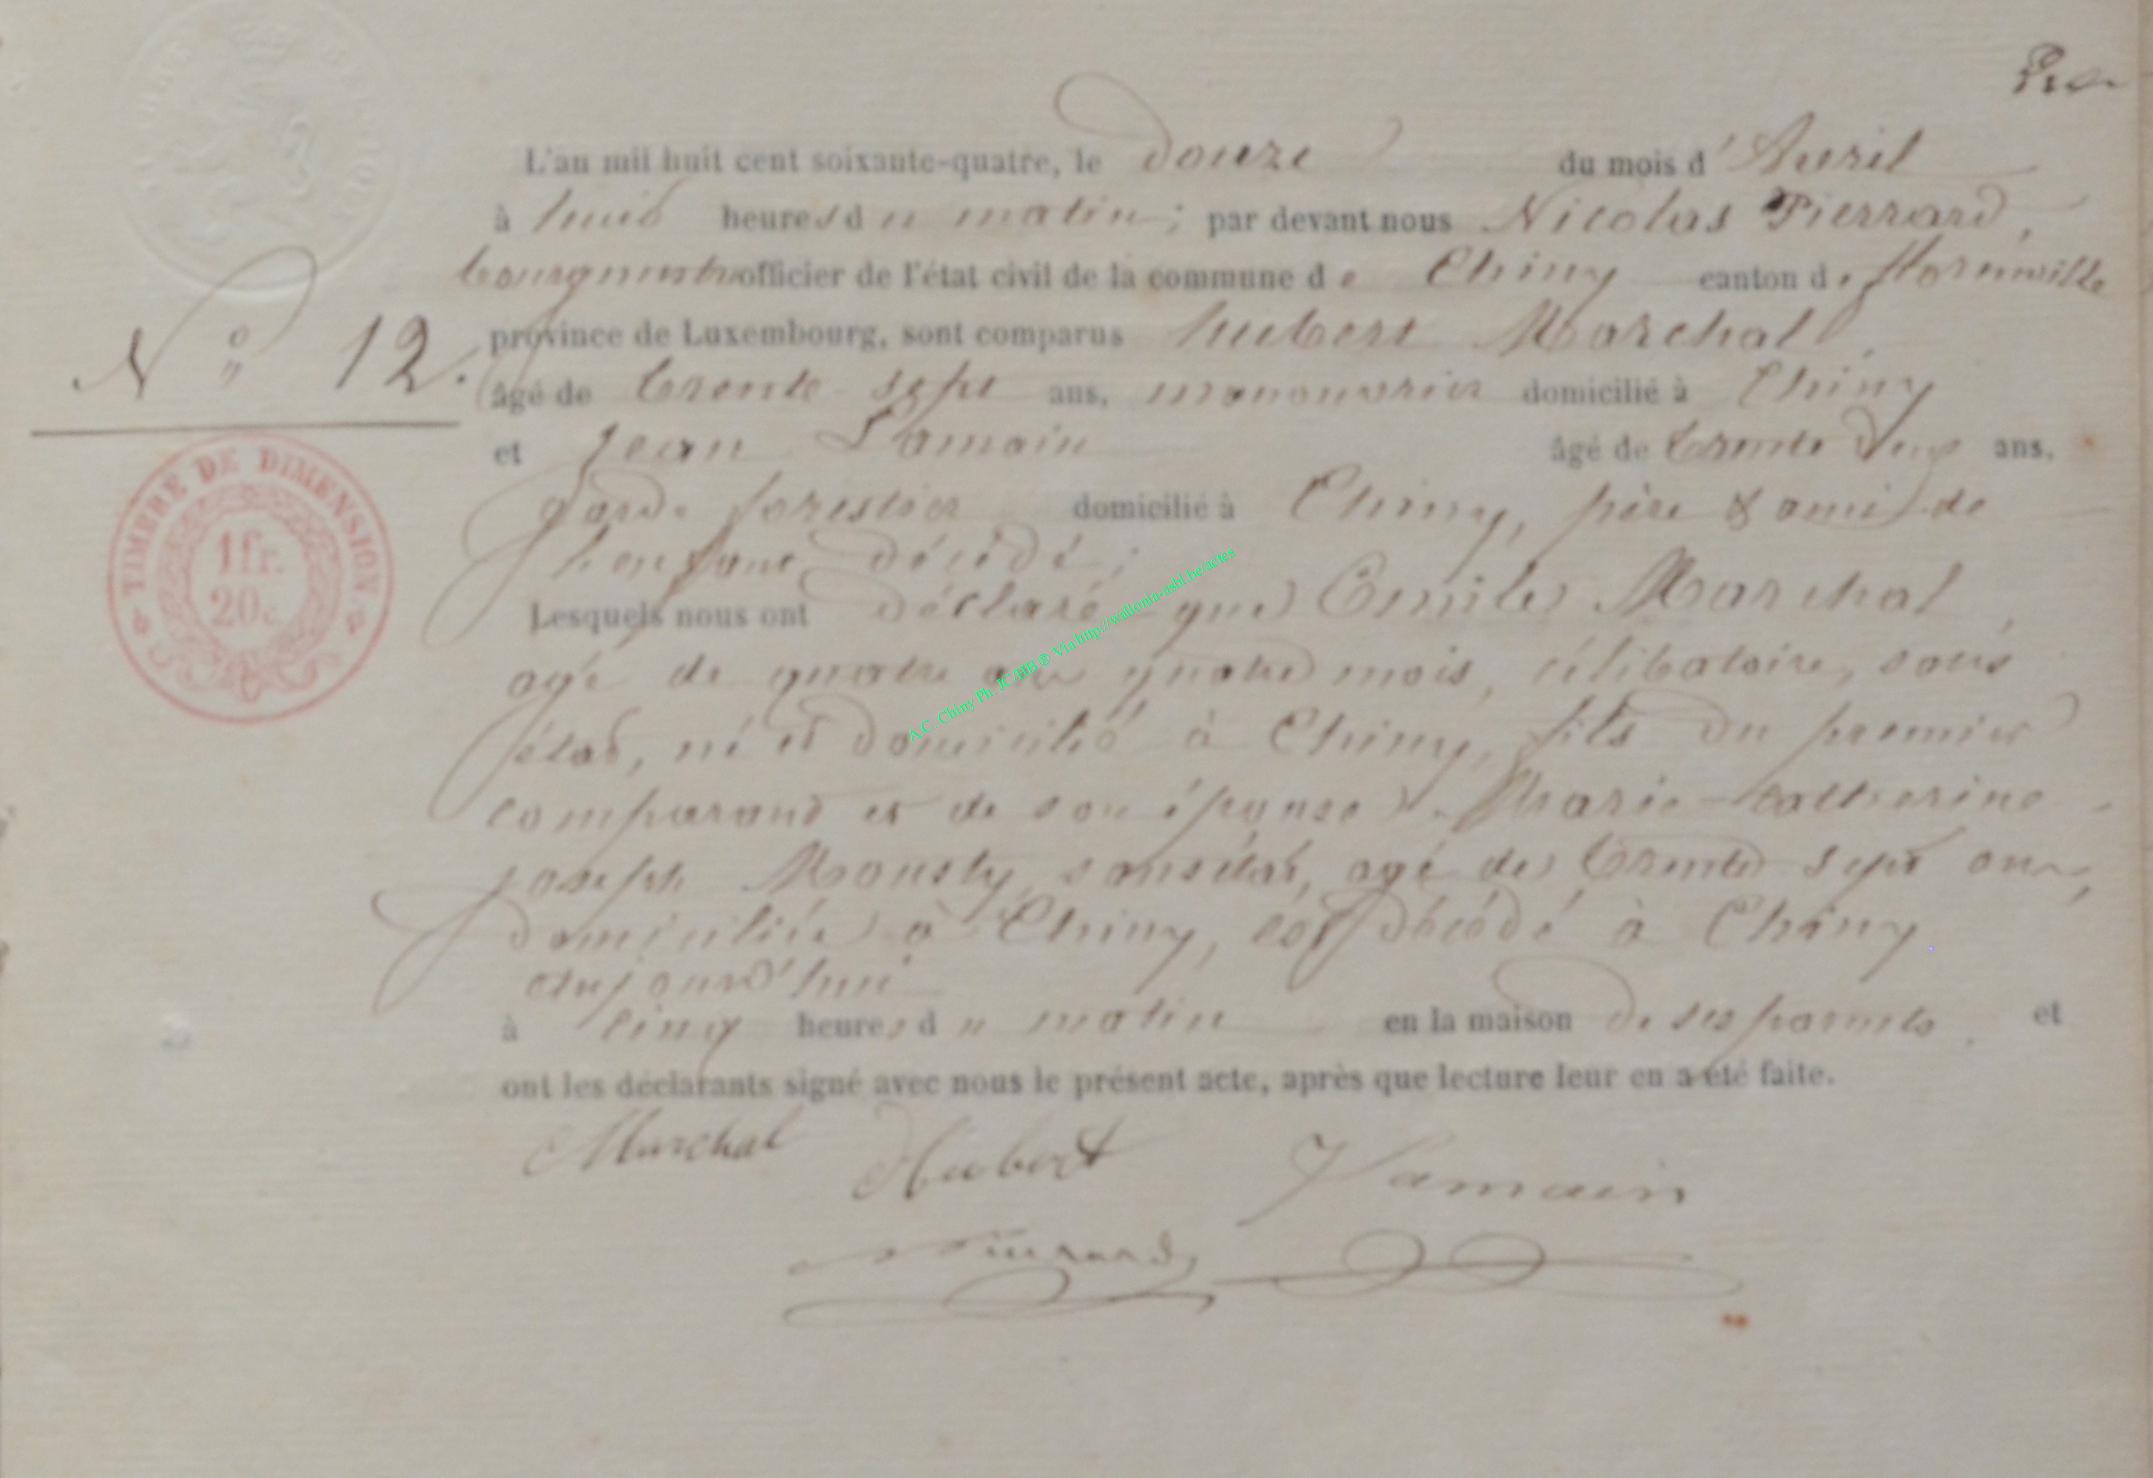 L'an mil huit cent soixante-quatre, le douze du mois d'Avril
à huit heures du matin; par devant nous Nicolas Pierrard,
bourgmestre officier de l'état civil de la commune de Chiny canton de florenville
province de Luxembourg, sont comparus hubert Marchal,
N° 12.
âgé de trente sept ans, manouvrier domicilié à Chiny
et Jean Lamain âgé de trente deux ans,
garde forestier domicilié à Chiny, père & ami de
l'enfant décédé;
Lesquels nous ont déclaré que Emile Marchal,
agé de quatre ans quatre mois, célibataire, sans
état, né et domicilié à Chiny, fils du premier
comparant et de son épouse Marie-Catherine
joseph Mousty, sans état, agé de trente sept ans,
domiciliée à Chiny, est décédé à Chiny
aujourd'hui
à cinq heures du matin en la maison de ses parents et
ont les déclarants signé avec nous le présent acte, après que lecture leur en a été faite.
Marchal Hubert J Lamain
N Pierrard
TIMBRE DE DIMENSION
1 fr.
20c.
A.C. Chiny Ph. JC/HB ® Via http://wallonia-asbl.be/actes